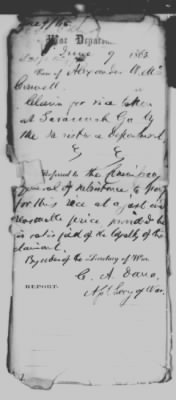 War Department
June 9 1865
Alexander W. Mc
Claim for rice taken
at Savannah Ga by
the
Referred to the Commissary
General of Subsistence to pay
for this rice at a just and
reasonable price provided he
is satisfied of the loyalty of the
claimant.
By order of the Secretary of War
C. A. Dana
Asst Secy of War.
REPORT.